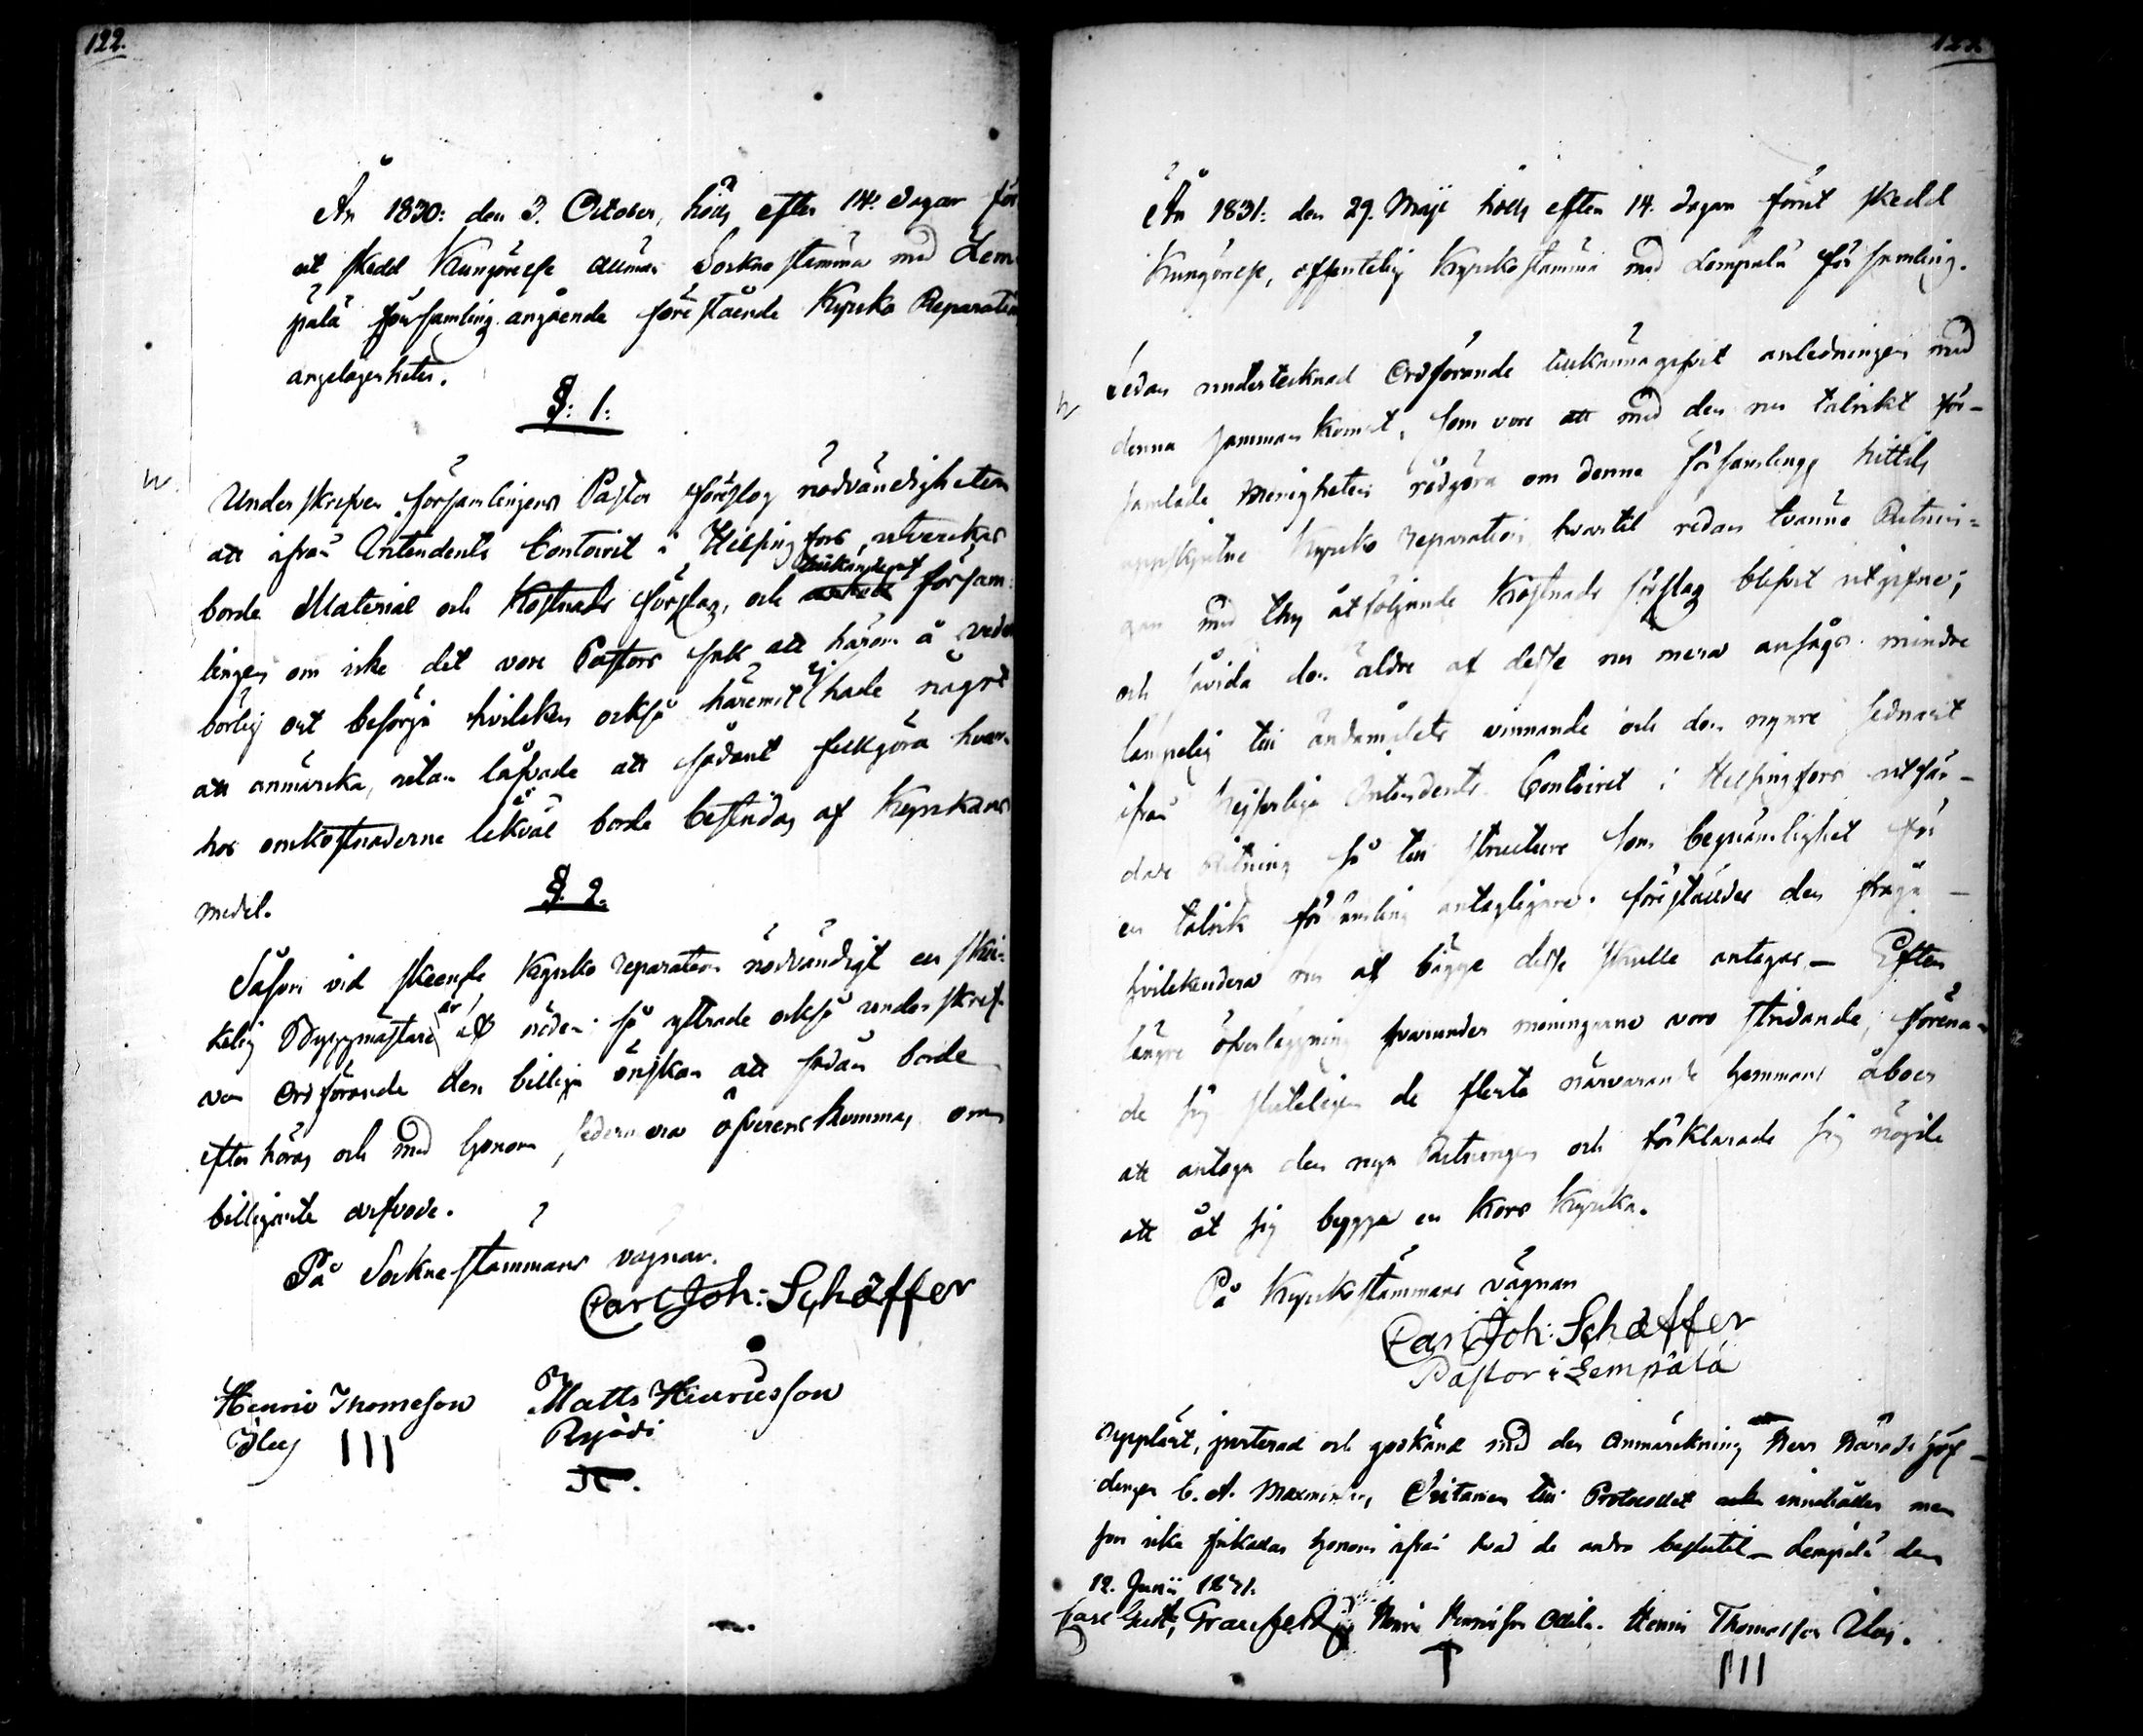 122.
År 1830: den 3. October, hölls efter 14. dagar för
ut skedd Kungörelse allmän Sockne stämma med Lem-
pälä församling angående förestående Kyrko Reparation
angelägenheter.
§: 1:
Underskrifven församlingens Pastor föreslog nödvändigheten
att ifrån Intendents Contoiret i Helsingfors, utverkas
borde Material och Kostnads förslag, och försam-
lingen om icke det vore Pastors sak att härom å veder
börlig ort besörja hvilken också häremot ej hade något
att anmärka, utan låfvade att sådant fullgöra hvar-
hos omkostnaderne likväl borde bestridas af Kyrkans
medel.
§. 2.
Såsom vid skeende Kyrko reparation nödvändigt en skic-
kelig Byggmästare är af nöden: så yttrade också underskref-
ven Ordförande den billiga önskan att sådan borde
efterhöras och med honom sedermera öfverenskommas om
billigaste arfvode.
På Sockne stämmans vägnar.
Carl Joh: Schäffer
Henric Thomesson Matts Henricsson
III Ryödi
År 1831: den 29. Maji hölls efter 14. dagar förut skedd
Kungörelse, offentelig Kyrkostämma med Lempälä församling.
Sedan undertecknad Ordförande tillkännagifvit anledningen med
denna sammankomst, som vore att med den nu talrikt för-
samlade Menigheten rådgöra om denna församlings hittils
uppskjutne Kyrko reparation hvartil redan tvänne Ritnin-
gar med thy åtföljande Kostnads förslag blifvit utgifne;
och såvida den äldre af desse nu mera ansågs mindre
lämpelig till ändamålets vinnande och den nyare sednast
ifrån Kejserliga Intendents Contoiret i Helsingfors utfär-
dade Ritning så till structure som beqvämlighet för
en talrik församling antagligare. föreställdes den fråga –
hvilkendera nu af bägge desse skulle antagas – Efter
längre öfverläggning hvarunder meningarne voro stridande, förena-
de sig sluteligen de flesta närvarande hemmans åboer
att antaga den nya Ritningen och förklarade sig nöjde
att åt sig bygga en Kors Kyrka.
På Kyrkostämmans vägnar
Carl Joh: Schäffer
Pastor i Lempälä
Uppläst, justerad och godkänd med den anmärkning Herr Härads höf-
dingen C. A. till Protocollet innehåller men
som icke honom ifrån hvad de andra beslutit – Lempälä den
12. Junii 1831.
Carl Gust, Henric Henricsson Henric Thomasson
III